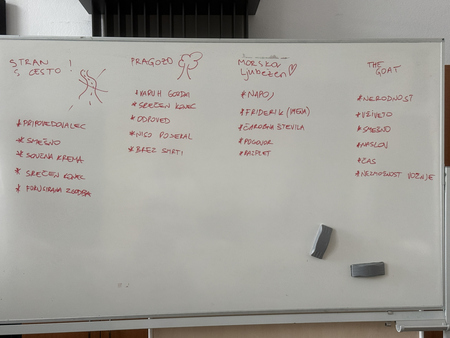 STRAN
S CESTO!
* PRIPOVEDOVALEC
* SMEŠNO
* SONČNA KREMA
* SREČEN KONEC
PRAGOZD
* VAPUH GOZDA
* SREČEN KONEC
* ODPOVED
* NISO POJEDAL
* BREZ SMRTI
MORSKOV
LJUBEZEN
* NAPOJ
* FRIDERIK (MENA)
* ČAROBNA ŠTEVILA
* POGOVOR
* RAZPLET
THE
GOAT
* NERODNOST
* VŽIVETO
* SMEŠNO
* NASLOV
* ČAS
* NEZMOŽNOST VOŽNJE